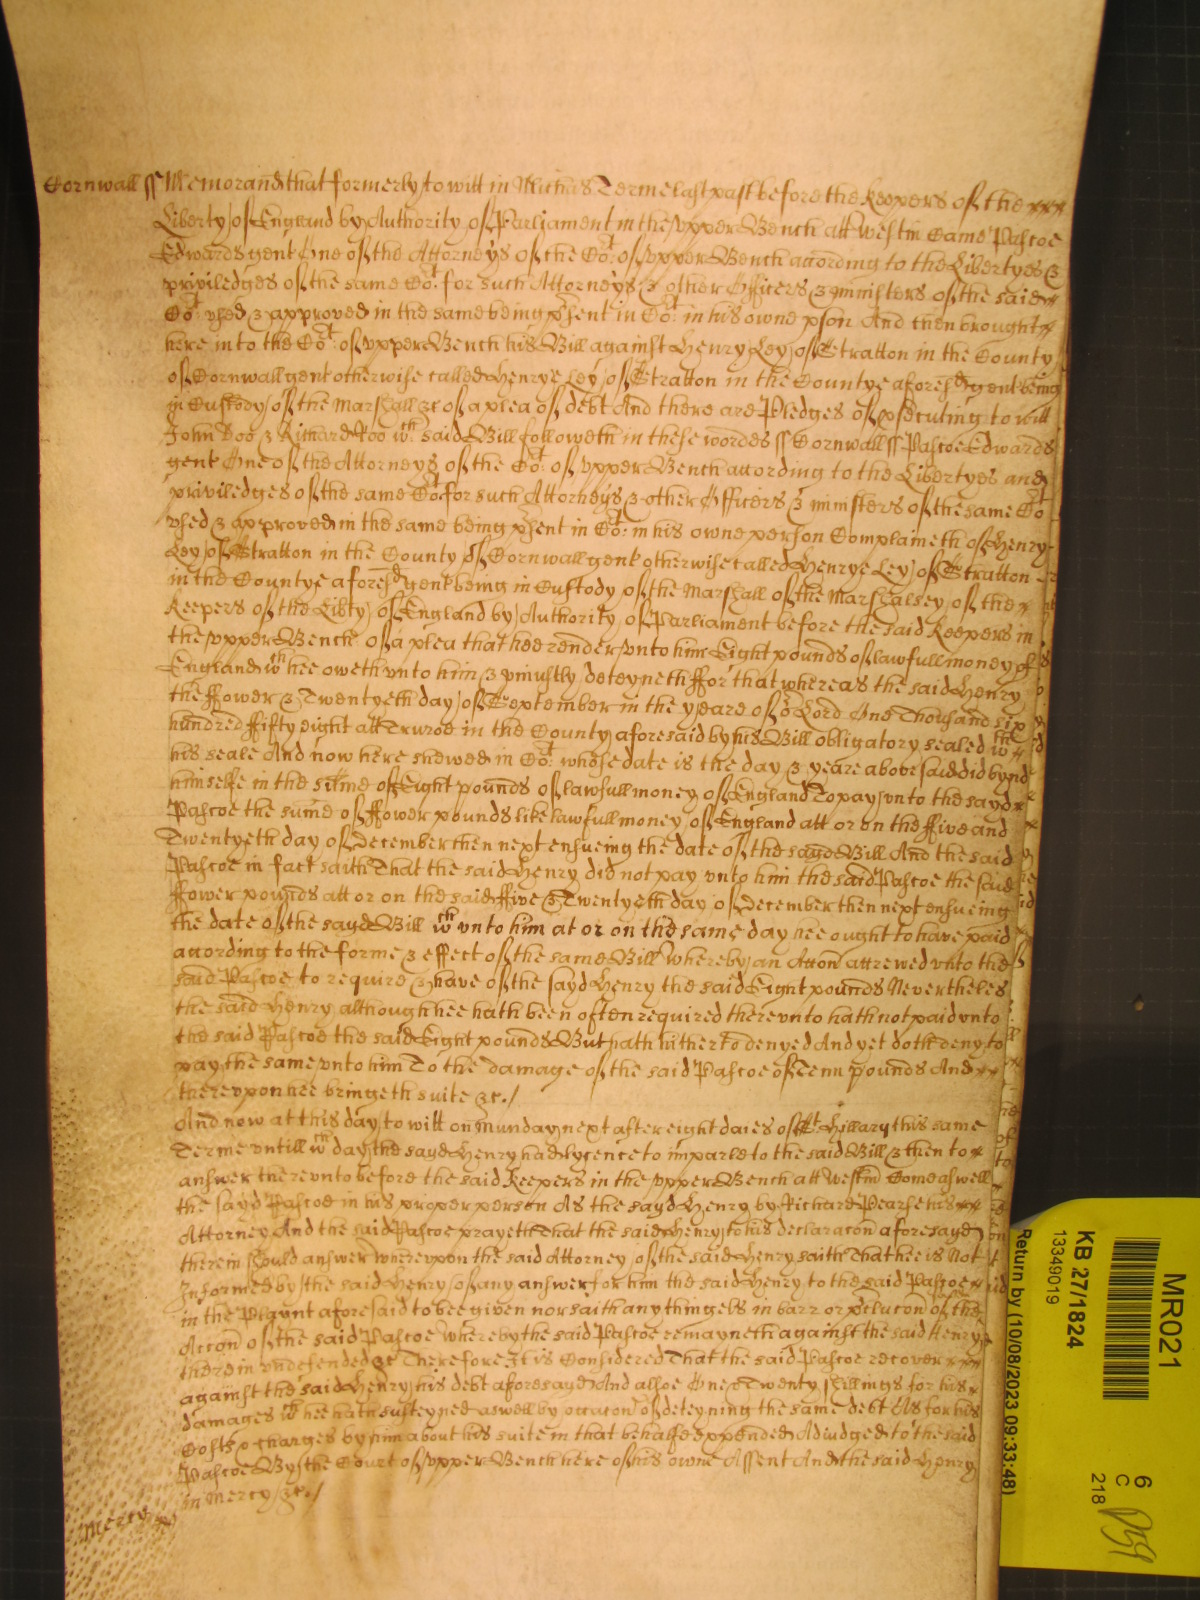 Cornwall ss Memorand that formerly to witt in Michas Terme last past before the Keepers of the
Liberty of England by Authority of Parliament in the upper Bench att Westm Came Pascoe
Edwards gent One of the Attorneys of the Cot of upper Bench according to the Libertyes &
priviledges of the same Cot for such Attorneys & other Officers & ministers of the said
Cot vsed & approved in the same being psent in Cot in his owne pson And then brought
here into the Cot of vpper Bench his Bill against Henry Ley of Stratton in the County
of Cornwall gent otherwise called Henrye Ley of Stratton in the Countye aforesd gent being
in Custody of the Marshall &c of a plea of debt And there are Pledges of psecuting to witt
John Doo & Richard Roo wch said Bill followeth in these wordes ss Cornwall ss Pascoe Edwards
gent One of the Attorneys of the Cot of vpper Bench according to the Libertyes and
priviledges of the same Cot for such Attorneys & other Officers & ministers of the same Cot
vsed & approved in the same being psent in Cot in his owne person Complaineth of Henry
Ley of Stratton in the County of Cornwall gent otherwise called Henrye Ley of Stratton
in the Countye aforesd gent being in Custody of the Marshall of the Marshalsey of the
Keepers of the Libty of England by Authority of Parliament before the said Keepers in
the vpper Bench of a plea that hee render vnto him Eight pounds of lawfull money of
England wch hee oweth vnto him & vniustly deteyneth ffor that whereas the said Henry
the ffower & Twentyeth day of September in the yeare of or Lord One Thousand six
hundred ffifty eight att Truroe in the County aforesaid by his Bill obligatory sealed wth
his seale And now here shewed in Cot whose date is the day & yeare abovesaid did bynd
himselfe in the sume of Eight pounds of lawfull money of England To pay vnto the sayd
Pascoe the sume of ffower pounds like lawfull money of England att or on the ffive and
Twentyeth day of December then next ensueing the date of the sayd Bill And the said
Pascoe in fact saith That the said Henry did not pay vnto him the said Pascoe the said
ffower pounds att or on the said ffive & Twentyeth day of December then next ensueing
the date of the sayd Bill wch vnto him at or on the same day hee ought to have paid
according to the forme & effect of the same Bill Whereby an Accon accrewed vnto the
said Pascoe to require & have of the sayd Henry the said Eight pounds Nevertheles
the said Henry although hee hath been often required therevnto hath not paid vnto
the said Pascoe the said Eight pounds But hath hitherto denyed And yet doth deny to
pay the same vnto him To the damage of the said Pascoe of Tenn pounds And
therevpon hee bringeth suite &c./
And now at this day to witt on Munday next after eight daies of St Hillary this same
Terme vntill wch day the sayd Henry had lycence to imparle to the said Bill & then to
answer therevnto before the said Keepers in the vpper Bench att Westm Come aswell
the sayd Pascoe in his proper person As the sayd Henry by Richard Pearse his
Attorney And the said Pascoe prayeth That the said Henry to his declaracon aforesayd
therein should answer wherevpon the said Attorney of the said Henry saith That hee is Not
Informed by the said Henry of any answer for him the said Henry to the said Pascoe
in the Playnt aforesaid to bee given nor saith any thing els in barr or pclucon of the
Accon of the said Pascoe Whereby the said Pascoe remayneth against the said Henry
therein vndefended &c Therefore It is Considered That the said Pascoe recover
against the said Henry his debt aforesayd And alsoe One & Twenty shillings for his
damages wch hee hath susteyned aswell by occacon of deteyning the same debt As for his
Costs & charges by him about his suite in that behalfe expended Adiudged to the said
Pascoe By the Court of vpper Bench here of his owne Assent And the said Henry
in Mercy &c./
Mercy
MR021
KB 27/1824
13349019
Return by (10/08/2023 09:33:48)
6
C
218